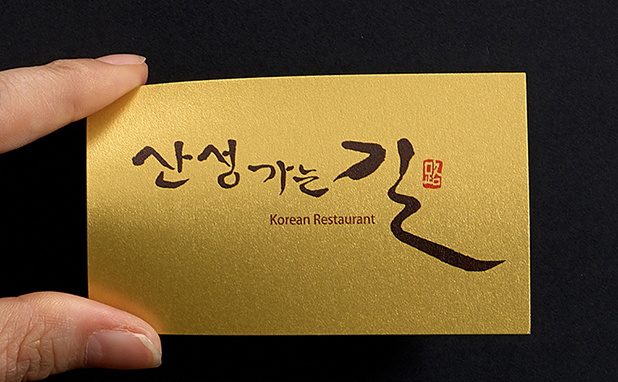 산성 가는 길
Korean Restaurant